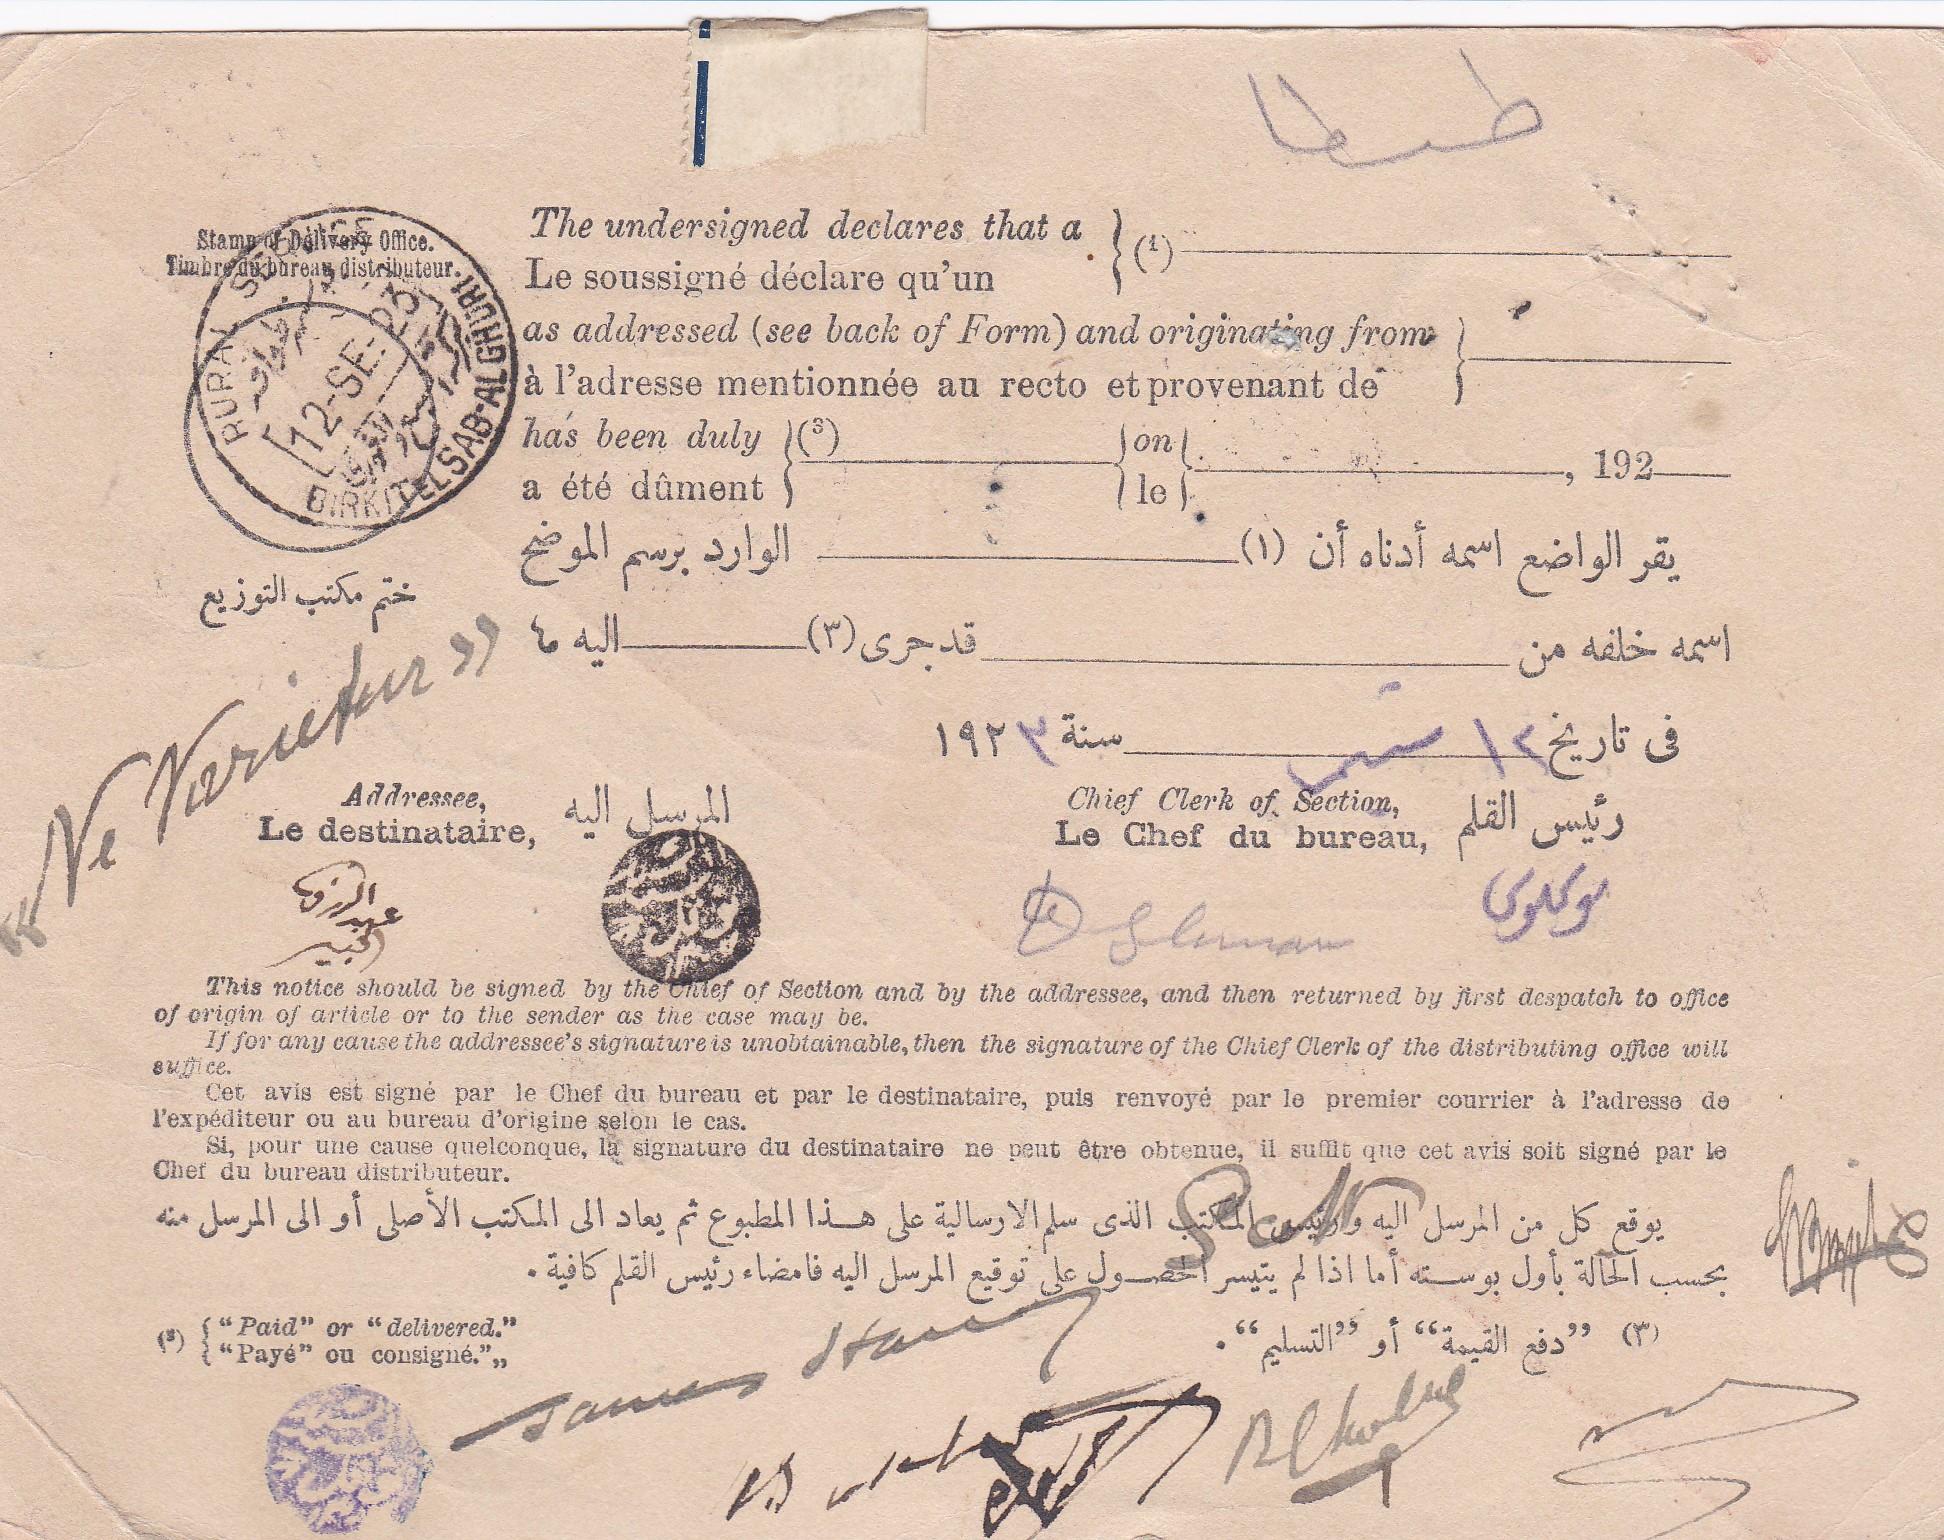 طنطا
Stamp of Delivery Office.
Timbre du bureau distributeur.
RURAL SERVICE
BIRKIT ELSAB-ALGHURI
12-SE-23
ختم مكتب التوزيع
The undersigned declares that a
Le soussigné déclare qu'un
(1)
as addressed (see back of Form) and originating from
à l'adresse mentionnée au recto et provenant de
has been duly
a été dûment
(3)
on
le
, 192
يقر الواضع اسمه أدناه أن (١) الوارد برسم الموضح
اسمه خلفه من قد جرى (٣) اليه ما
فى تاريخ ١٢ سبتمبر سنة ١٩٢٣
"Ne Varietur"
Addressee,
Le destinataire,
المرسل اليه
Chief Clerk of Section,
Le Chef du bureau,
رئيس القلم
This notice should be signed by the Chief of Section and by the addressee, and then returned by first despatch to office
of origin of article or to the sender as the case may be.
If for any cause the addressee's signature is unobtainable, then the signature of the Chief Clerk of the distributing office will
suffice.
Cet avis est signé par le Chef du bureau et par le destinataire, puis renvoyé par le premier courrier à l'adresse de
l'expéditeur ou au bureau d'origine selon le cas.
Si, pour une cause quelconque, la signature du destinataire ne peut être obtenue, il suffit que cet avis soit signé par le
Chef du bureau distributeur.
يوقع كل من المرسل اليه ورئيس المكتب الذى سلم الارسالية على هذا المطبوع ثم يعاد الى المكتب الأصلى أو الى المرسل منه
بحسب الحالة بأول بوسته أما اذا لم يتيسر الحصول على توقيع المرسل اليه فامضاء رئيس القلم كافية .
(3) { "Paid" or "delivered."
"Payé" ou consigné."„
(٣) ”دفع القيمة“ أو ”التسليم“ .